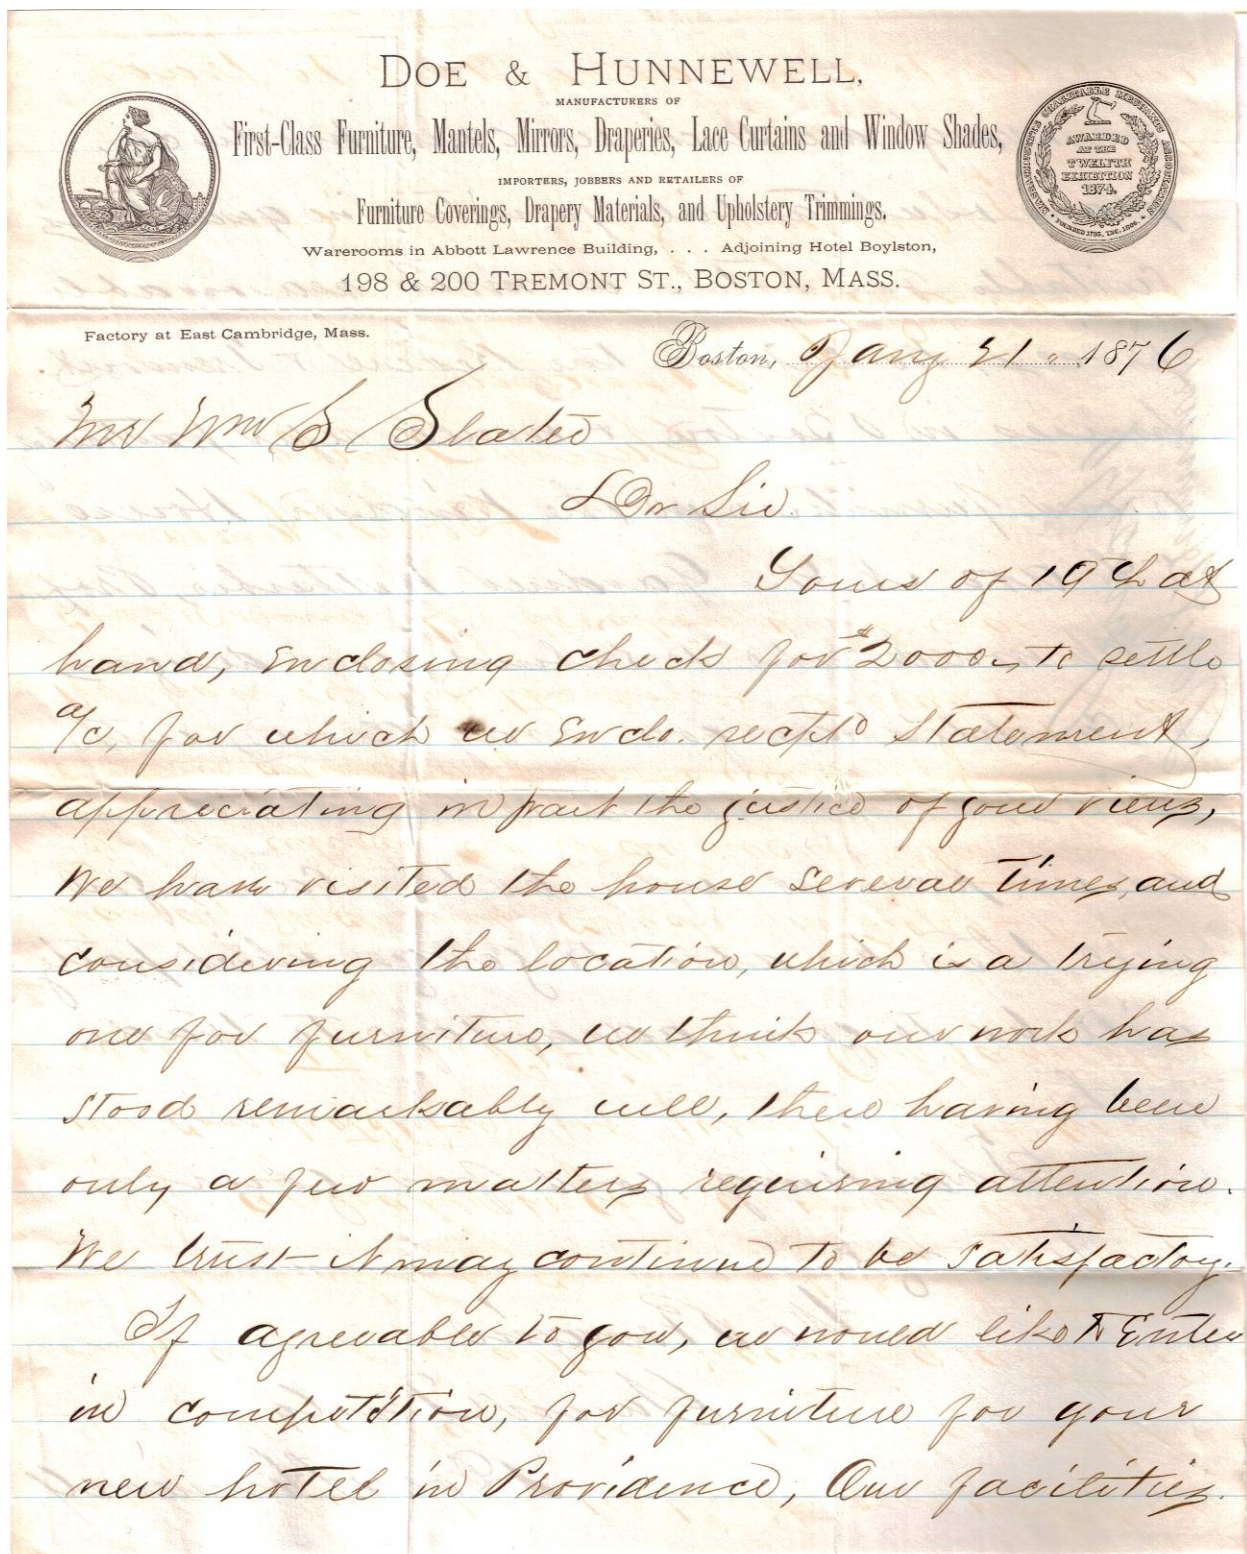 DOE & HUNNEWELL,
MANUFACTURERS OF
First-Class Furniture, Mantels, Mirrors, Draperies, Lace Curtains and Window Shades,
IMPORTERS, JOBBERS AND RETAILERS OF
Furniture Coverings, Drapery Materials, and Upholstery Trimmings.
Warerooms in Abbott Lawrence Building, . . . Adjoining Hotel Boylston,
198 & 200 TREMONT ST., BOSTON, MASS.
MASSACHUSETTS CHARITABLE MECHANIC ASSOCIATION
AWARDED
AT THE
TWELFTH
EXHIBITION
1874.
FOUNDED 1795, INC. 1806.
Factory at East Cambridge, Mass.
Boston, Jany 21. 1876
Mr Wm S Slater
Dr Sir.
Yours of 19th at
hand, enclosing check for $2000, to settle
a/c, for which we Enclo. rectpd Statement,
appreciating in part the justice of your views,
We have visited the house several times, and
considering the location, which is a trying
one for furniture, we think our work has
stood remarkably well, there having been
only a few matters requiring attention.
We trust it may continue to be satisfactory.
If agreeable to you, we would like to Enter
in competition, for furniture for your
new hotel in Providence, Our facilities.